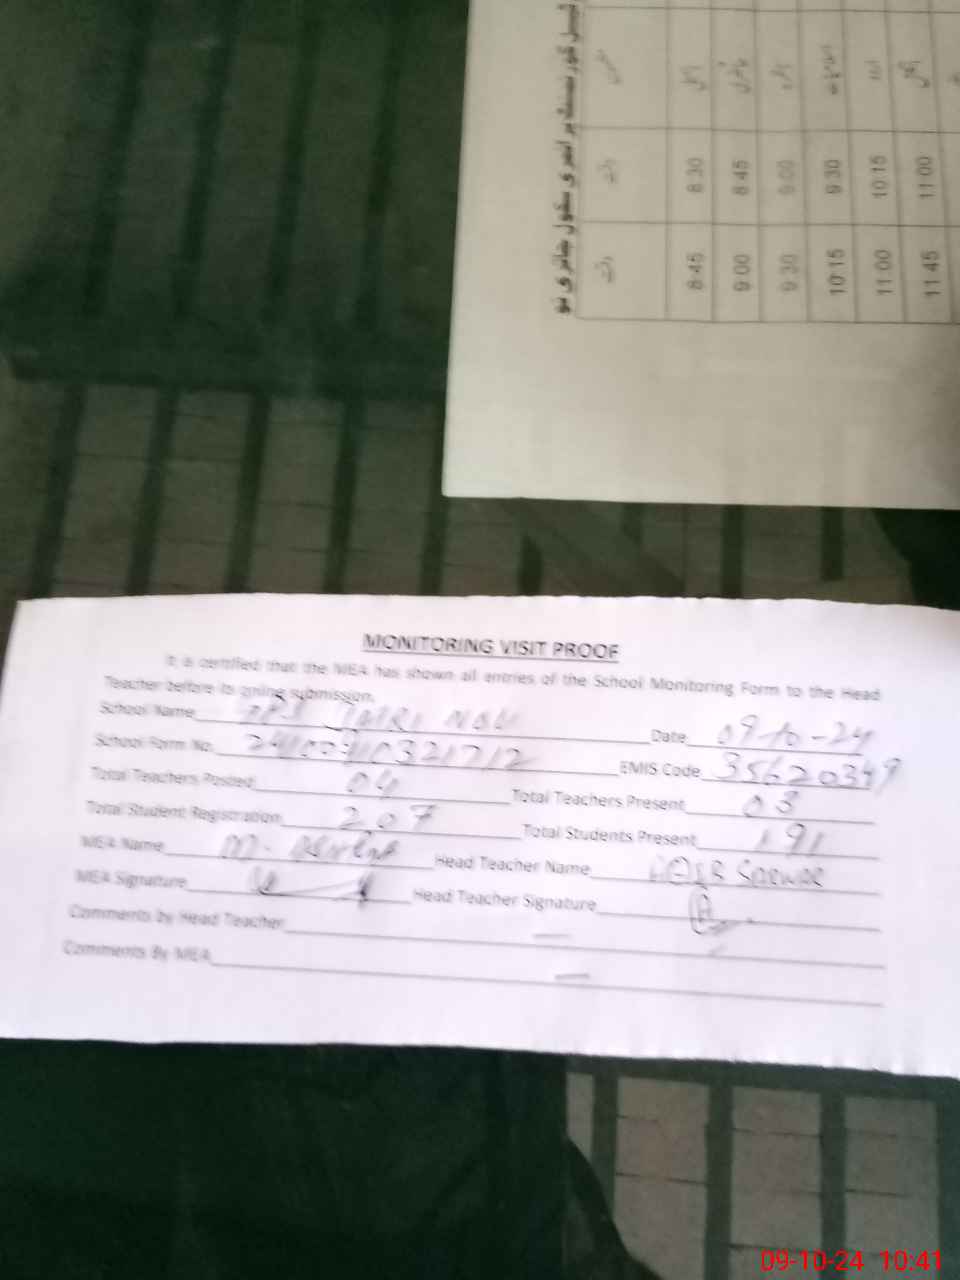 گورنمنٹ پرائمری سکول جاتری نو
وقت وقت
8:45 8:30
9:00 8:45
9:30 9:00
10:15 9:30
11:00 10:15
11:45 11:00
MONITORING VISIT PROOF
It is certified that the MEA has shown all entries of the School Monitoring Form to the Head
Teacher before its online submission.
School Name GPS JATRI NOU Date 09-10-24
School Form No. EMIS Code 35620349
Total Teachers Posted 04 Total Teachers Present 03
Total Student Registration 207 Total Students Present 191
MEA Name M. Head Teacher Name SARWAR
MEA Signature Head Teacher Signature
Comments by Head Teacher —
Comments By MEA —
09-10-24 10:41